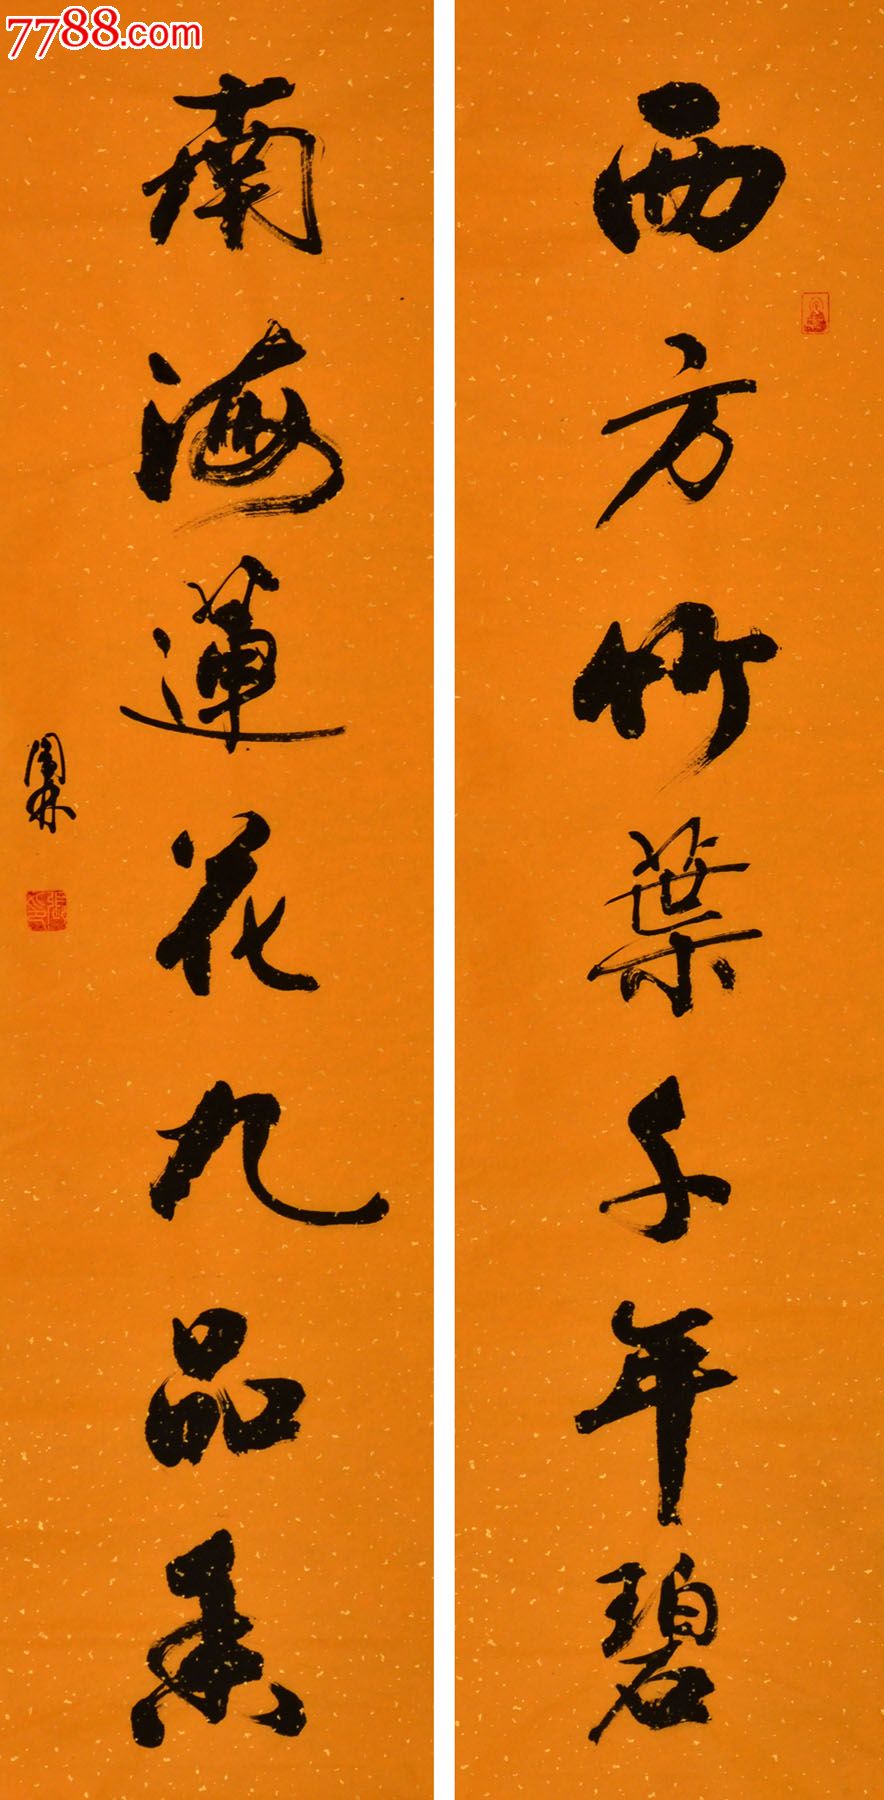 7788.com
西方竹葉千年碧
南海蓮花九品香